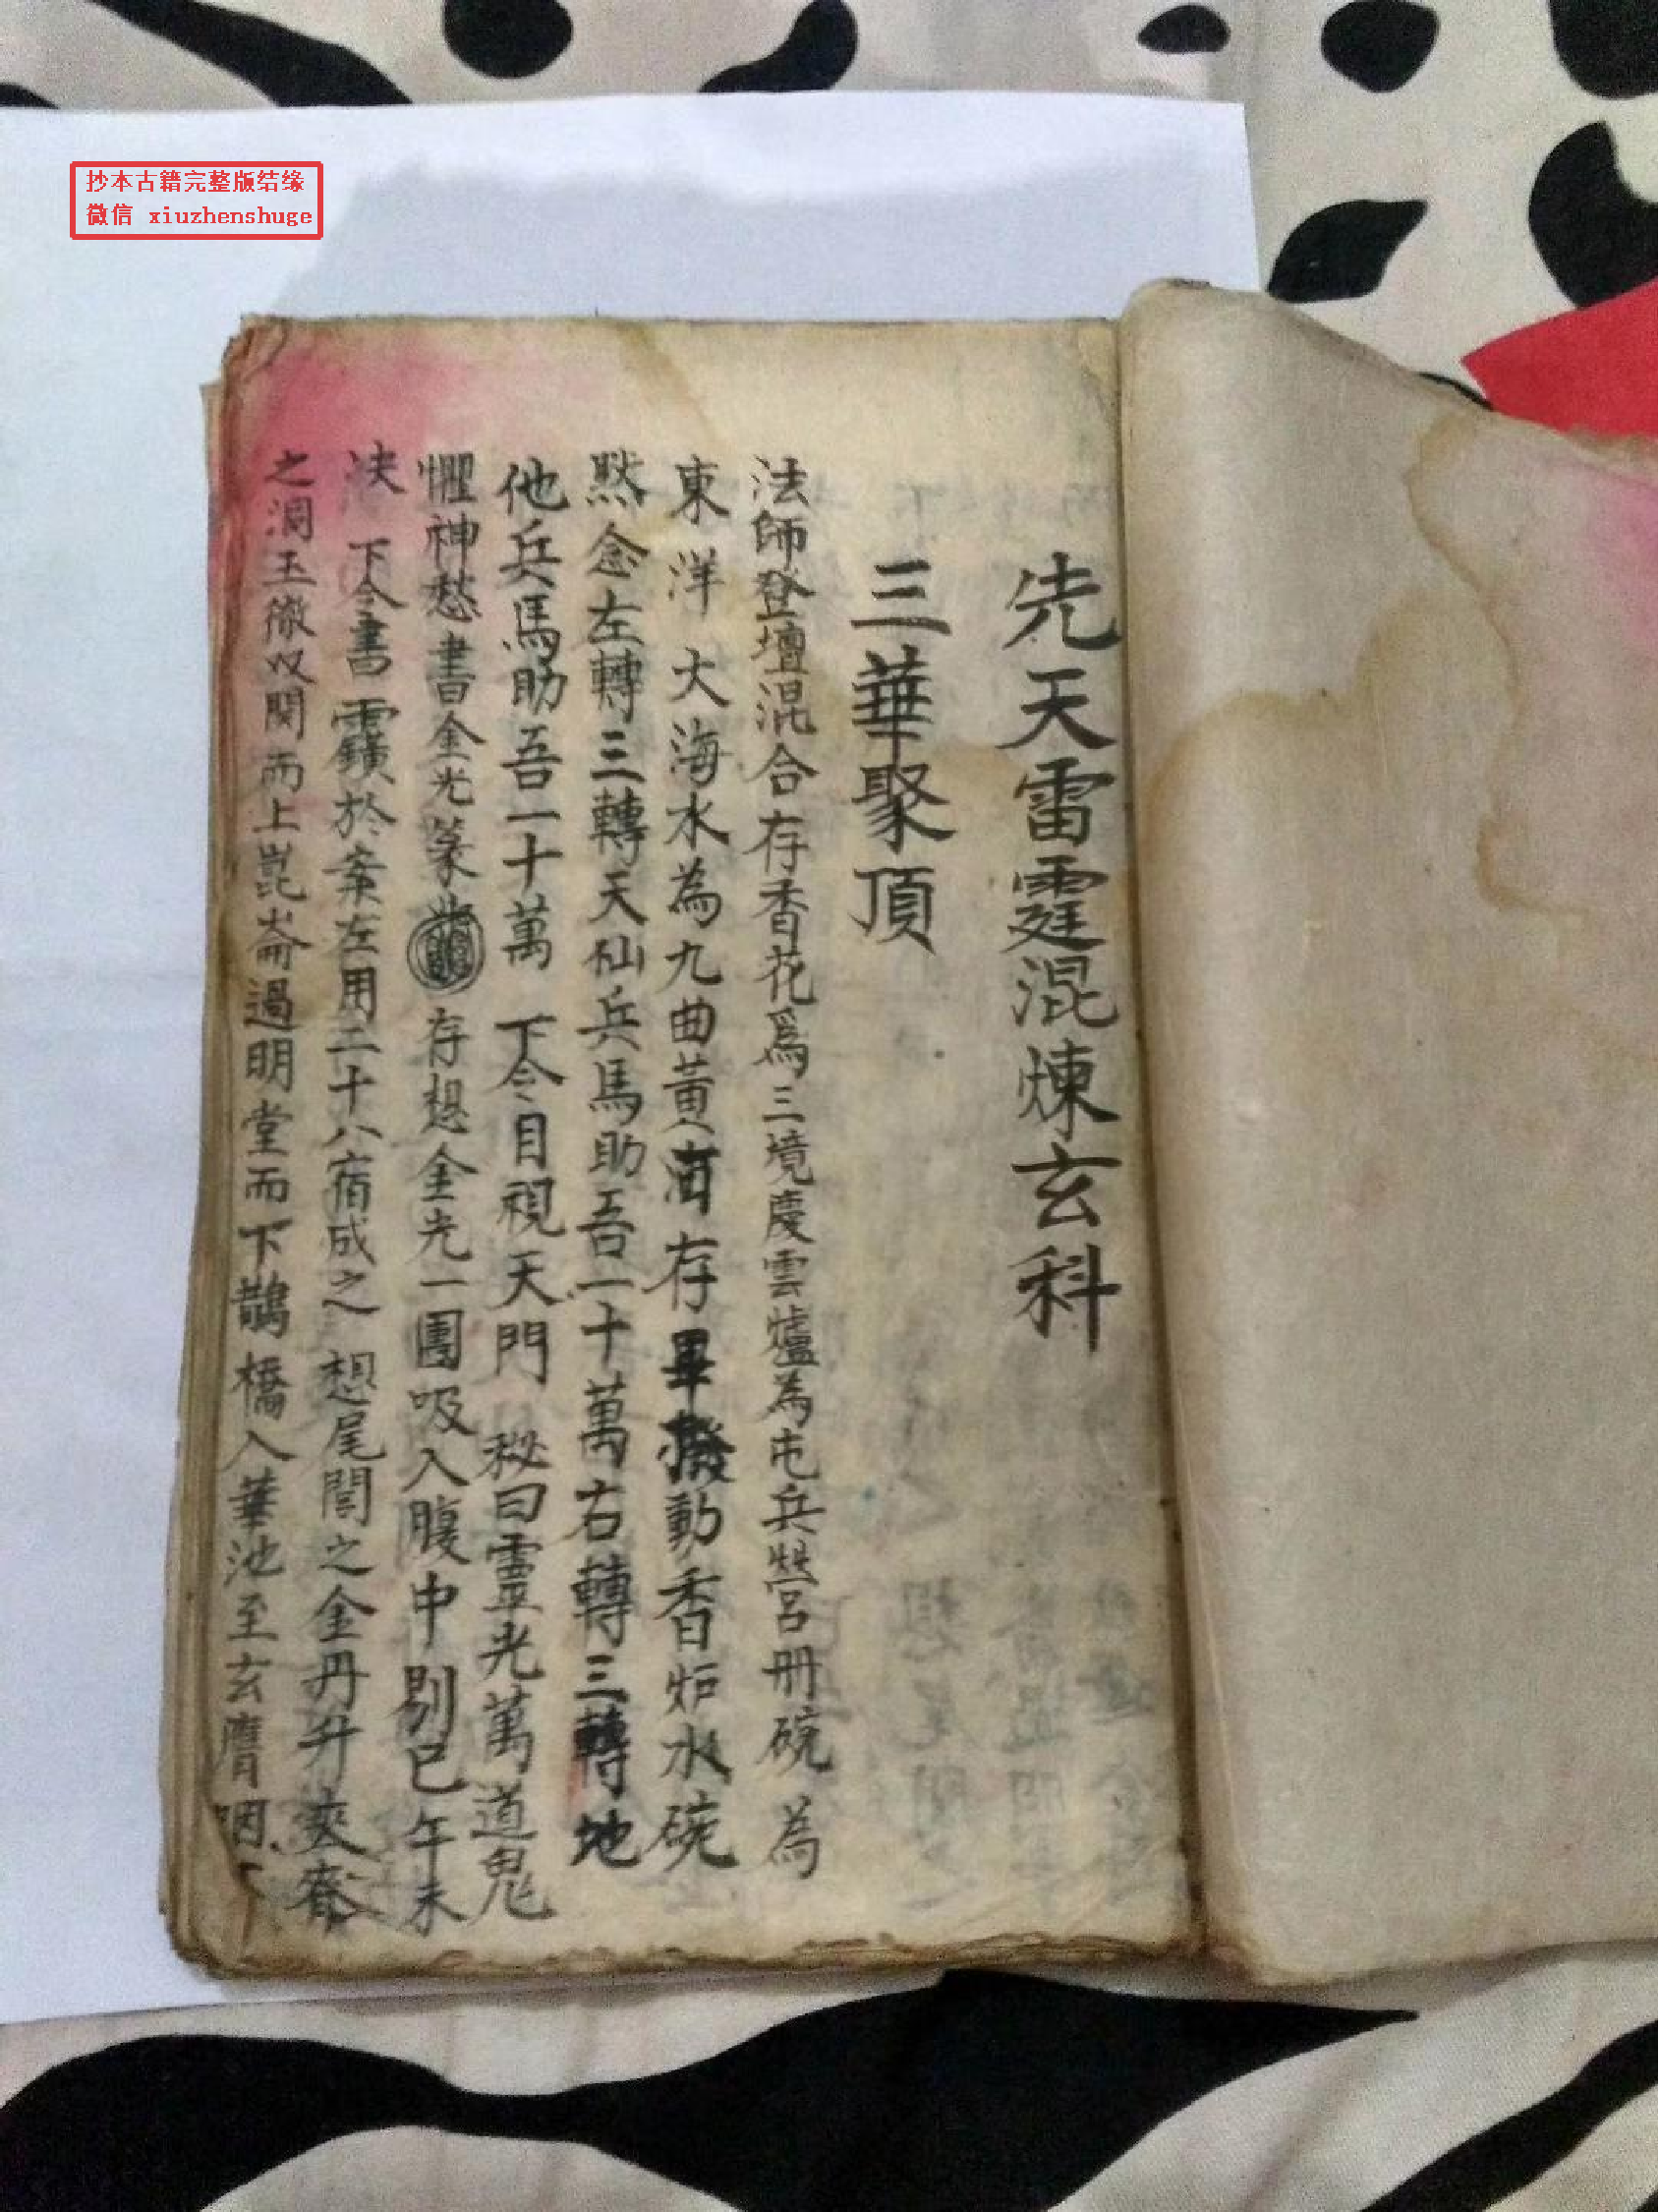 抄本古籍完整版结缘
微信 xiuzhenshuge
先天雷霆混煉玄科
三華聚頂
法師登壇混合存香花爲三境慶雲爐為屯兵營冊碗為
東洋大海水為九曲黃河存畢撥動香炉水碗
默念左轉三轉天仙兵馬助吾一十萬右轉三轉地
他兵馬助吾一十萬下令目視天門秘曰靈光萬道鬼
懼神愁書金光篆存想金光一團吸入腹中剔巳午未
決下令書於案左用二十八宿成之想尾閭之金丹升夾脊
之澗玉㣲双関而上崑崙過明堂而下鵲橋入華池至玄膺咽下